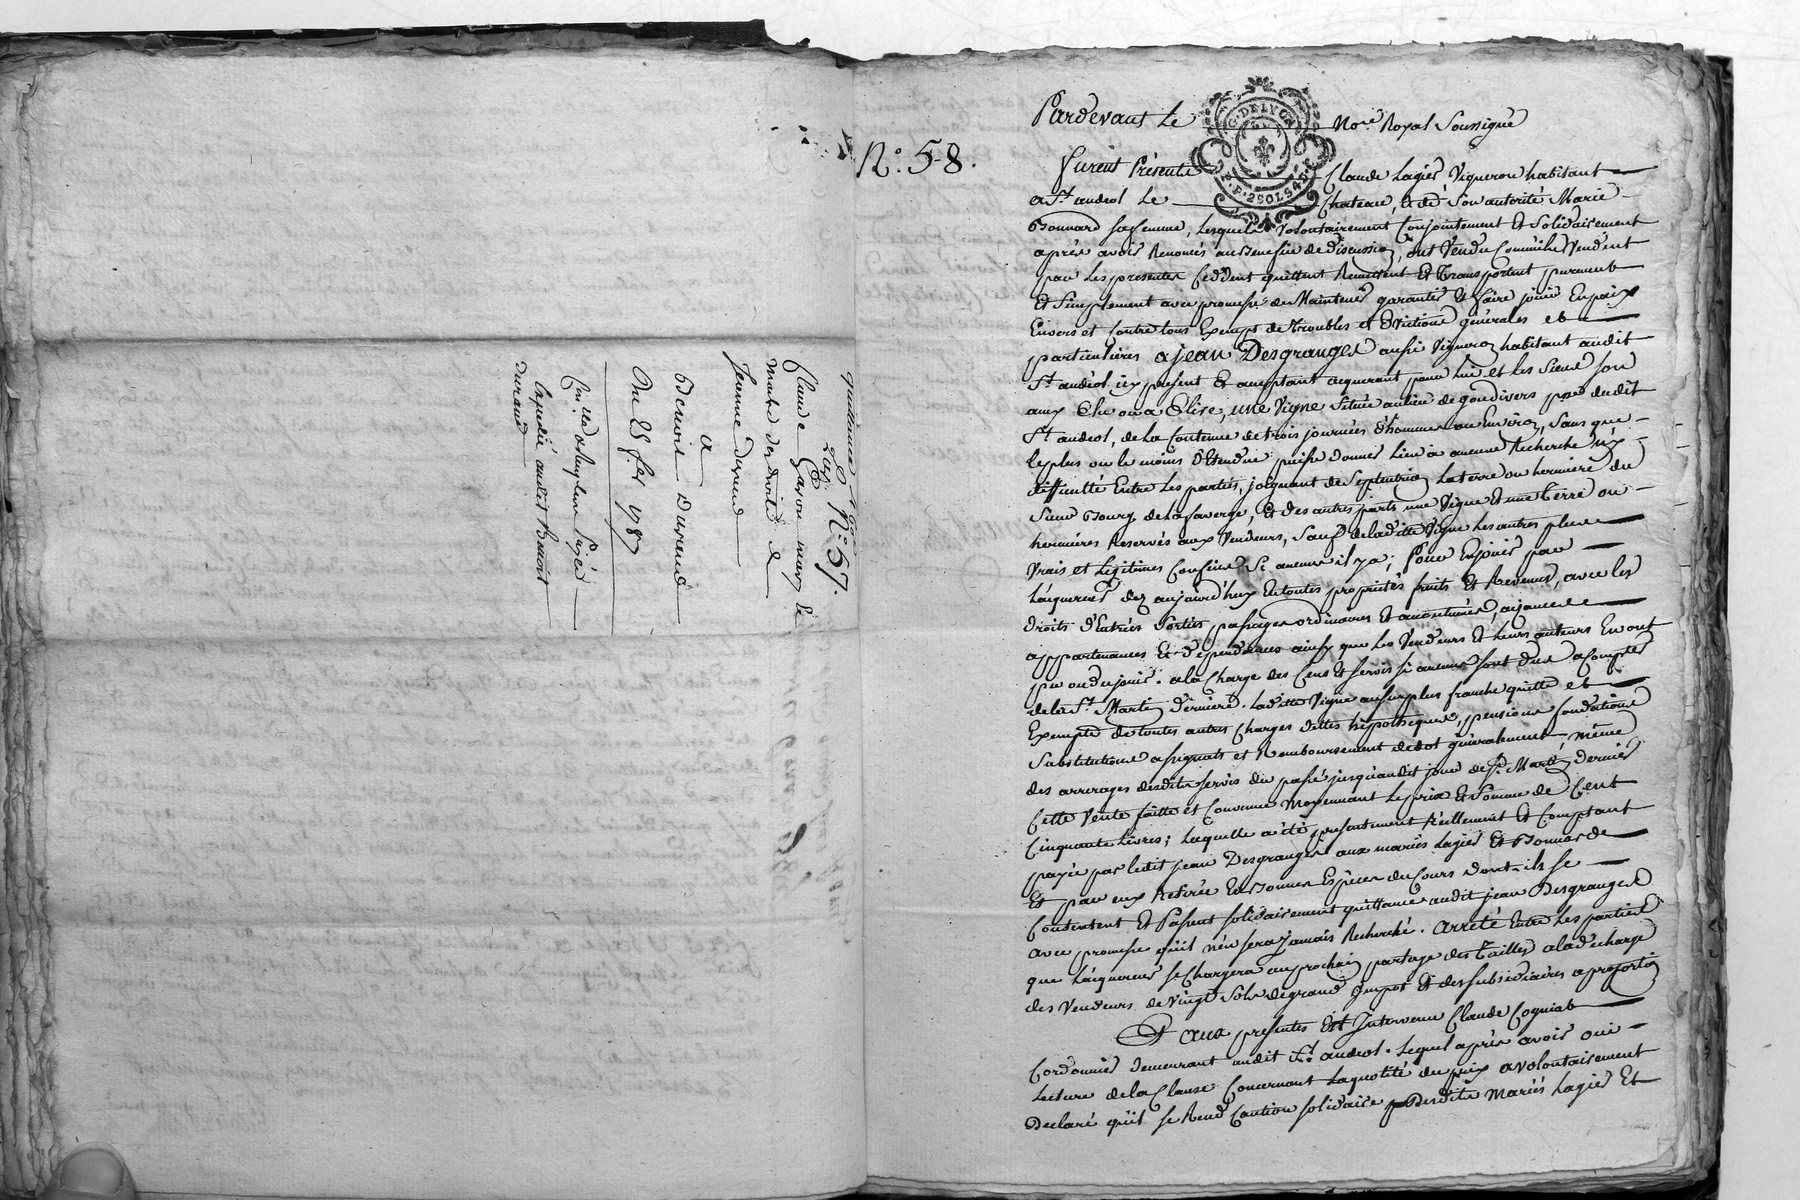 quittance 160#
2 exp.
N.° 57.
Claude Garon mary &
maitre des droits de
Jeanne durand
a
Benoit Durand
Du 25 fev. 1787
expedié audit Benoit
durand
N.° 58.
Pardevant Le No.re Royal Soussigné
G. DE LYON
Furent Présents Claude Lagier Vigneron habitant
a S.t andeol Le Chateau, et de Son autorité Marie
Bonnard sa femme, Lesquels Volontairement Conjointement Et Solidairement
après avoir Renoncés au Benefice de discussion, ont Vendu Comm'ils Vendent
par Les presentes Ceddent quittent Remettent Et Transportent purement
Et Simplement avec promesse de Maintenir garantir & faire jouir En paix
Envers et Contre tous Exempt de troubles et Evictions générales et
particulières a jean Desgranges aussi Vigneron habitant audit
S.t andéol icy présent Et acceptant acquereur pour Lui et Les Siens Son
amy Elu ou a Elire, une Vigne Située au lieu de goudivers pse dudit
S.t andeol, de La Contenue de trois journées d'hommes ou Environ, Sans que
le plus ou le moins d'Etendue puisse donner Lieu a aucune Recherche n'y
difficulté Entre Les parties, joignant de Septentrion La terre ou hermiere du
Sieur Bourg de La faverge, Et des autres parts une Vigne Et une terre ou
hermières Reservés aux Vendeurs, Sauf de laditte Vigne Les autres plus
Vrais et Legitimes Confins Si aucuns il y a; Pour En jouir par
L'acquereur dez aujourd'huy En toutes proprietés fruits Et Revenus, avec les
droits d'Entrées Sorties passages ordinaires Et accoutumés, aisances
appartenances Et dépendances ainsy que Les Vendeurs Et Leurs auteurs En ont
pu ou du jouir. a la Charge des Cens Et Servis Si aucuns Sont dus a Compter
de la S.t Martin dernière. Laditte Vigne au Surplus franche quitte et
Exempte de toutes autres Charges dettes hypotheques, pensions fondations
Substitutions assignats et Remboursement de dot généralement, même
des arrerages desdits servis du passé jusqu'audit jour de S.t Martin dernier
Cette Vente faitte et Convenue moyennant Le prix Et Somme de Cent
Cinquante Livres; Laquelle a été présentement Réellement Et Comptant
payée par ledit jean Desgranges aux mariés Lagier Et Bonnard
Et par eux Retirée En Bonnes Espèces du Cours dont ils se
Contentent Et Passent solidairement quittance audit jean Desgranges
avec promesse qu'il n'en sera jamais Recherché. Arrêté Entre Les parties
que L'acquereur se Chargera au prochain partage des Tailles a la décharge
des Vendeurs de Vingt Sols de grand Impot Et des subsidiaires a proportion
Et aux presentes Est Intervenu Claude Cogniat
Cordonnier demeurant audit S.t andeol. Lequel après avoir oui
Lecture de la Clause Concernant La quotité du prix a volontairement
Declaré qu'il se Rend Caution solidaire desdits mariés Lagier Et